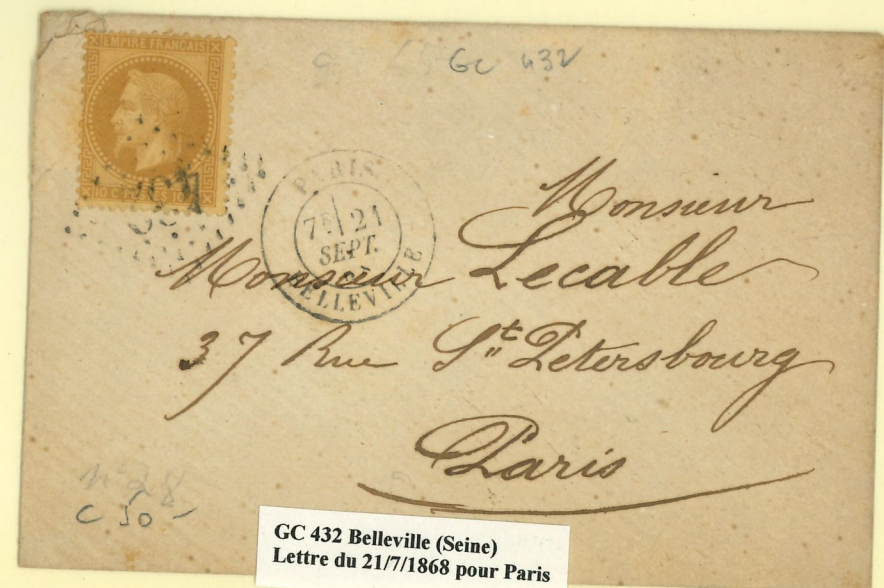 EMPIRE FRANÇAIS
GC 432
PARIS
7E 21
SEPT.
BELLEVILLE
Monsieur
Monsieur Lecable
37 Rue St Petersbourg
Paris
n° 28
C 50 -
GC 432 Belleville (Seine)
Lettre du 21/7/1868 pour Paris